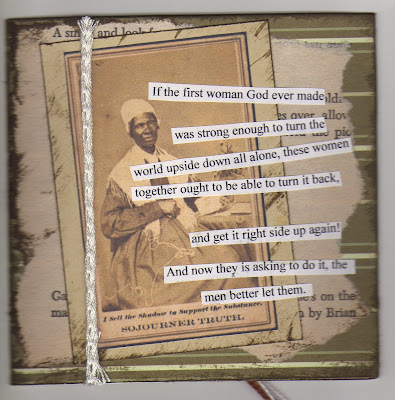 A and look f
If the first woman God ever made
was strong enough to turn the
world upside down all alone, these women
together ought to be able to turn it back,
and get it right side up again!
And now they is asking to do it, the
men better let them.
I Sell the Shadow to Support the Substance.
SOJOURNER TRUTH.
es over, allow
the pic
Ga
ma
's on the
by Brian